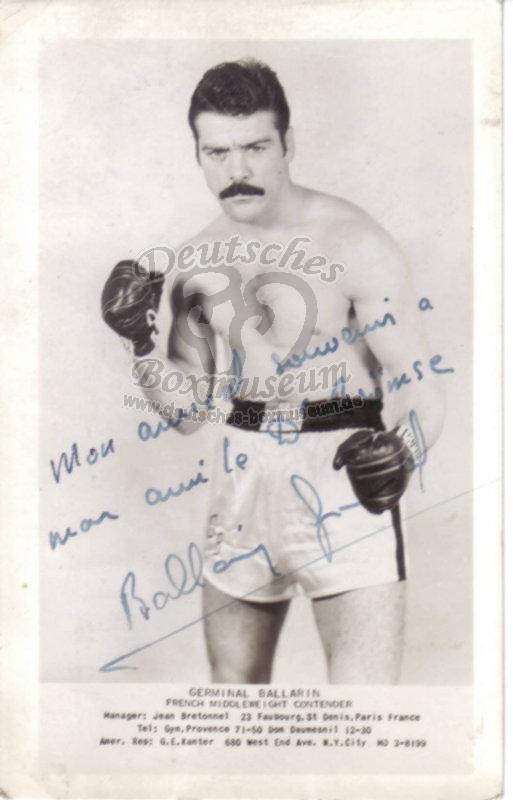 Deutsches
Boxmuseum
www.deutsches-boxmuseum.de
Mon amical souvenir a
mon ami le
Ballarin
GERMINAL BALLARIN
FRENCH MIDDLEWEIGHT CONTENDER
Manager: Jean Bretonnel 23 Faubourg.St Denis.Paris France
Tel: Gym.Provence 71-50 Dom Daumesnil 12-30
Amer. Rep: G.E.Kanter 680 West End Ave. N.Y.City MO 3-8199